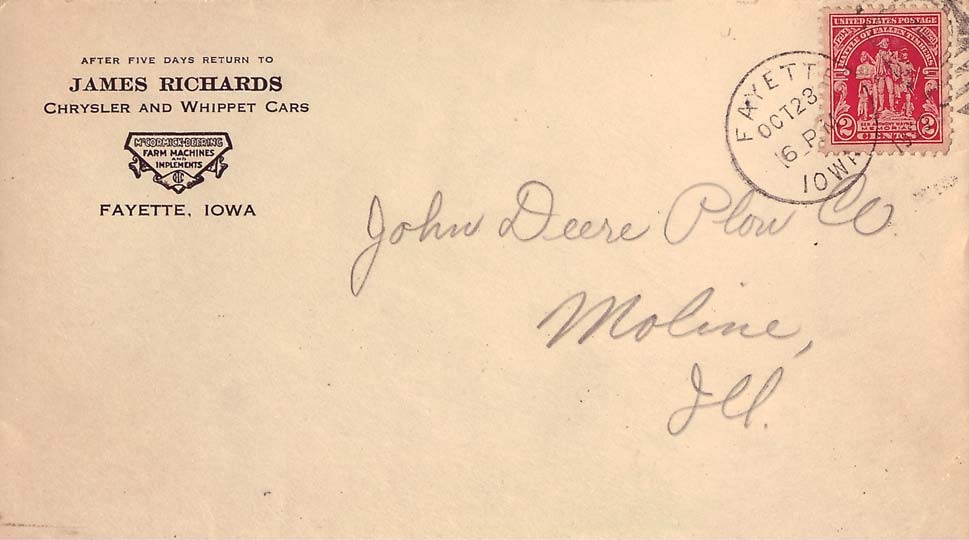 AFTER FIVE DAYS RETURN TO
JAMES RICHARDS
CHRYSLER AND WHIPPET CARS
McCORMICK-DEERING
FARM MACHINES
AND
IMPLEMENTS
FAYETTE, IOWA
FAYETTE
OCT 28
6 P
IOWA
UNITED STATES POSTAGE
BATTLE OF FALLEN TIMBERS
MEMORIAL
2 CENTS 2
John Deere Plow Co.
Moline,
Ill.